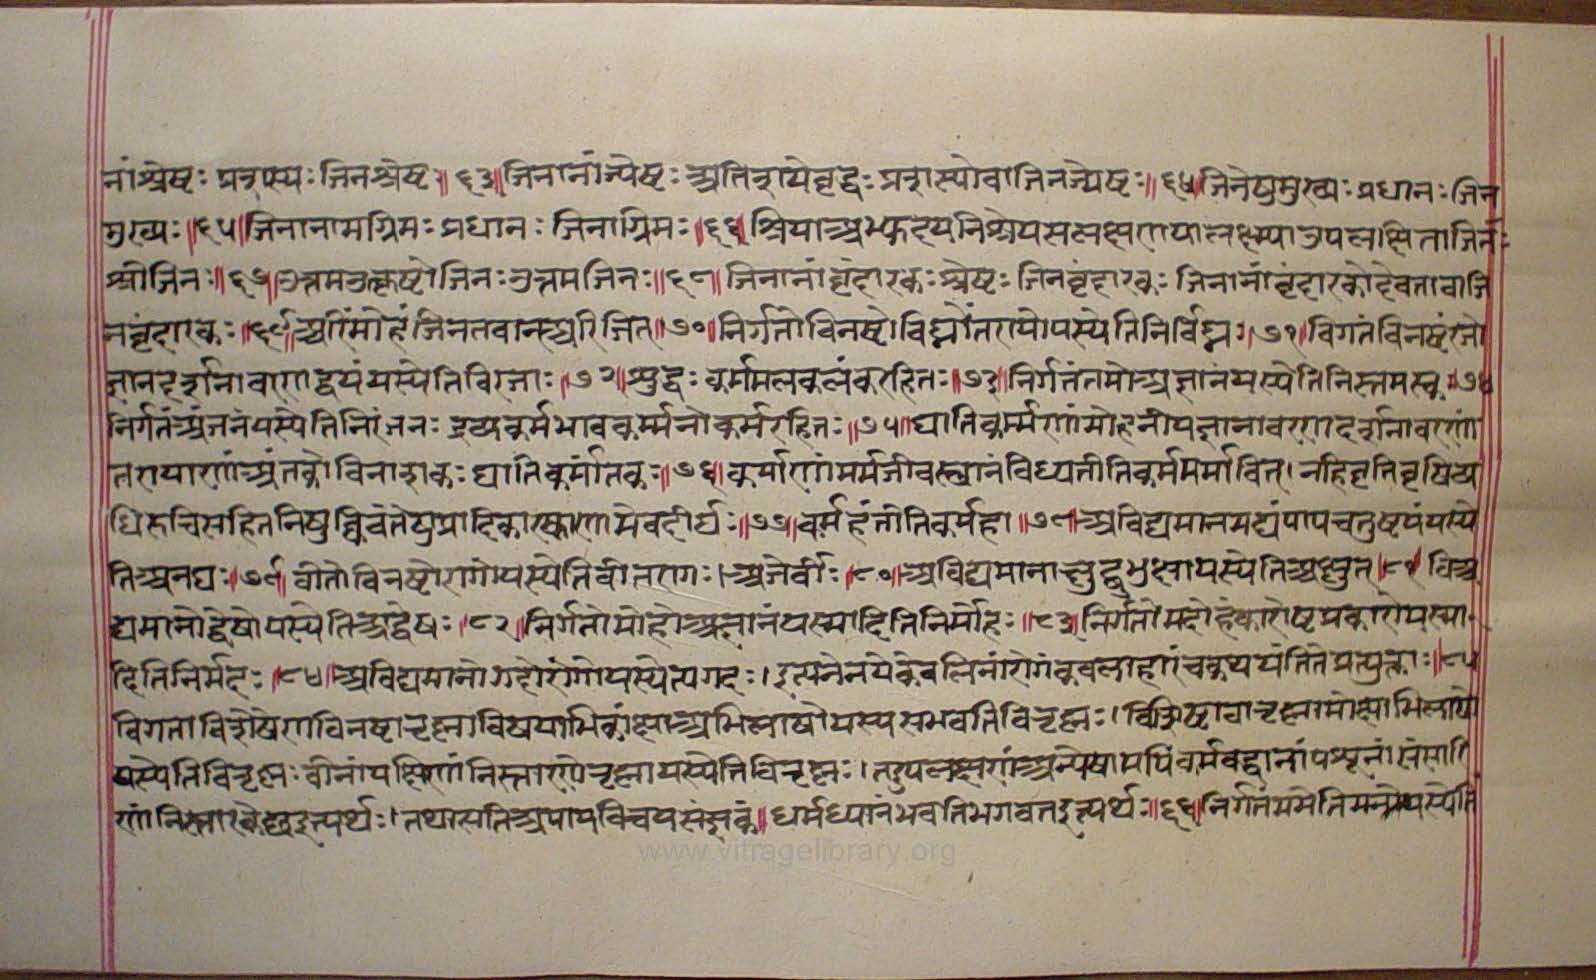 नांश्रेष्टः प्रशस्यः जिनश्रेष्टः॥ ६३॥जिनानांज्येष्टः अतिशयेवृद्धः प्रशस्योवाजिनज्येष्टः॥ ६४॥जिनेषुमुख्यः प्रधानः जिन
मुख्यः॥६५॥जिनानामग्रिमः प्रधानः जिनाग्रिमः॥६६॥श्रियाअभ्युदयनिश्रेयसलक्षणयालक्ष्म्याउपलक्षिताजिनः
श्रीजिनः॥६७॥उत्तमउत्कृष्टोजिनःउत्तमजिनः॥६८॥जिनानांवृंदारकःश्रेष्टः जिनवृंदारकः जिनानांवृंदारकोदेवतावाजि
नवृंदारकः॥६९॥अरिंमोहंजिनतवान्अरिजित्॥७०॥निर्गतोविनष्टोविघ्नोंतरायोयस्येतिनिर्विघ्नः॥७१॥विगतंविनष्टंरजो
ज्ञानदर्शनावरणद्वयंयस्येतिविरजाः॥७२॥शुद्धः कर्ममलकलंकरहितः॥७३॥निर्गतंतमोअज्ञानंयस्येतिनिस्तमस्कः॥७४
निर्गतंअंजनंयस्येतिनिरंजनः द्रव्यकर्मभावकर्म्मनोकर्मरहितः॥७५॥घातिकर्म्मणांमोहनीयज्ञानावरणदर्शनावरणां
तरायाणांअंतकोविनाशकः घातिकर्मांतकः॥७६॥कर्माणांमर्मजीवस्थानंविध्यतीतिकर्ममर्मावित्। नहिवृतिवृषिव्य
धिरुचिसहितनिषुक्विवंतेषुप्रादिकारकाणामेवदीर्घः॥७७॥कर्महंतीतिकर्महा॥७८॥अविद्यमानमघंपापचतुष्टयंयस्ये
तिअनघः॥७९॥वीतोविनष्टोरागोयस्येतिवीतरागः।अजेर्वीः॥८०॥अविद्यमानाक्षुद्बुभुक्षायस्येतिअक्षुत्॥८१॥विअ
द्यमानोद्वेषोयस्येतिअद्वेषः॥८२॥निर्गतोमोहोअज्ञानंयस्मादितिनिर्मोहः॥८३॥निर्गतोमदोहंकारोष्टप्रकारोयस्मा
दितिनिर्मदः॥८४॥अविद्यमानोगदोरोगोयस्येत्यगदः।इत्यनेनयेकेवलिनांरोगंकवलाहारंचकथयंतितेप्रत्युक्ताः॥८५
विगताविशेषेणविनष्टातृष्णाविषयाभिकांक्षाअभिलाषोयस्यसभवतिवितृष्णः।विशिष्टावातृष्णामोक्षाभिलाषो
यस्येतिवितृष्णः वीनांपक्षिणांनिस्तारणेतृष्णायस्येतिवितृष्णः।तदुपलक्षणंअन्येषामपिकर्मबद्धानांपशूनांसंसारि
णांनिस्तारकेछुइत्यर्थः।तथासतिअपायविचयसंज्ञकं॥धर्मध्यानंभवतिभगवतइत्यर्थः॥६६॥निर्गतंममेतिमनोयस्येति
www.vitragelibrary.org